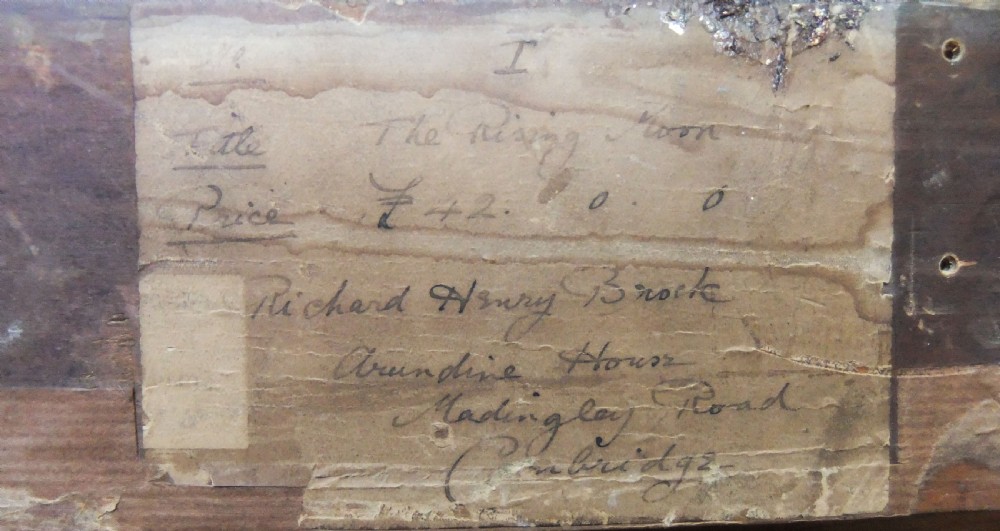 I
Title The Rising Moon
Price £42. 0. 0
Richard Henry Brock
Arundine House
Madingley Road
Cambridge